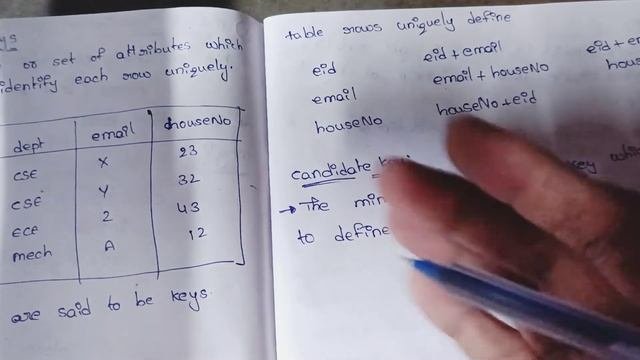 or set of attributes which
identify each row uniquely.
dept email houseNo
CSE X 23
CSE Y 32
ECE 2 43
mech A 12
are said to be keys.
table rows uniquely define
eid eid + email eid + em
email email + houseNo hous
houseNo houseNo + eid
candidate key
→ The min
to define